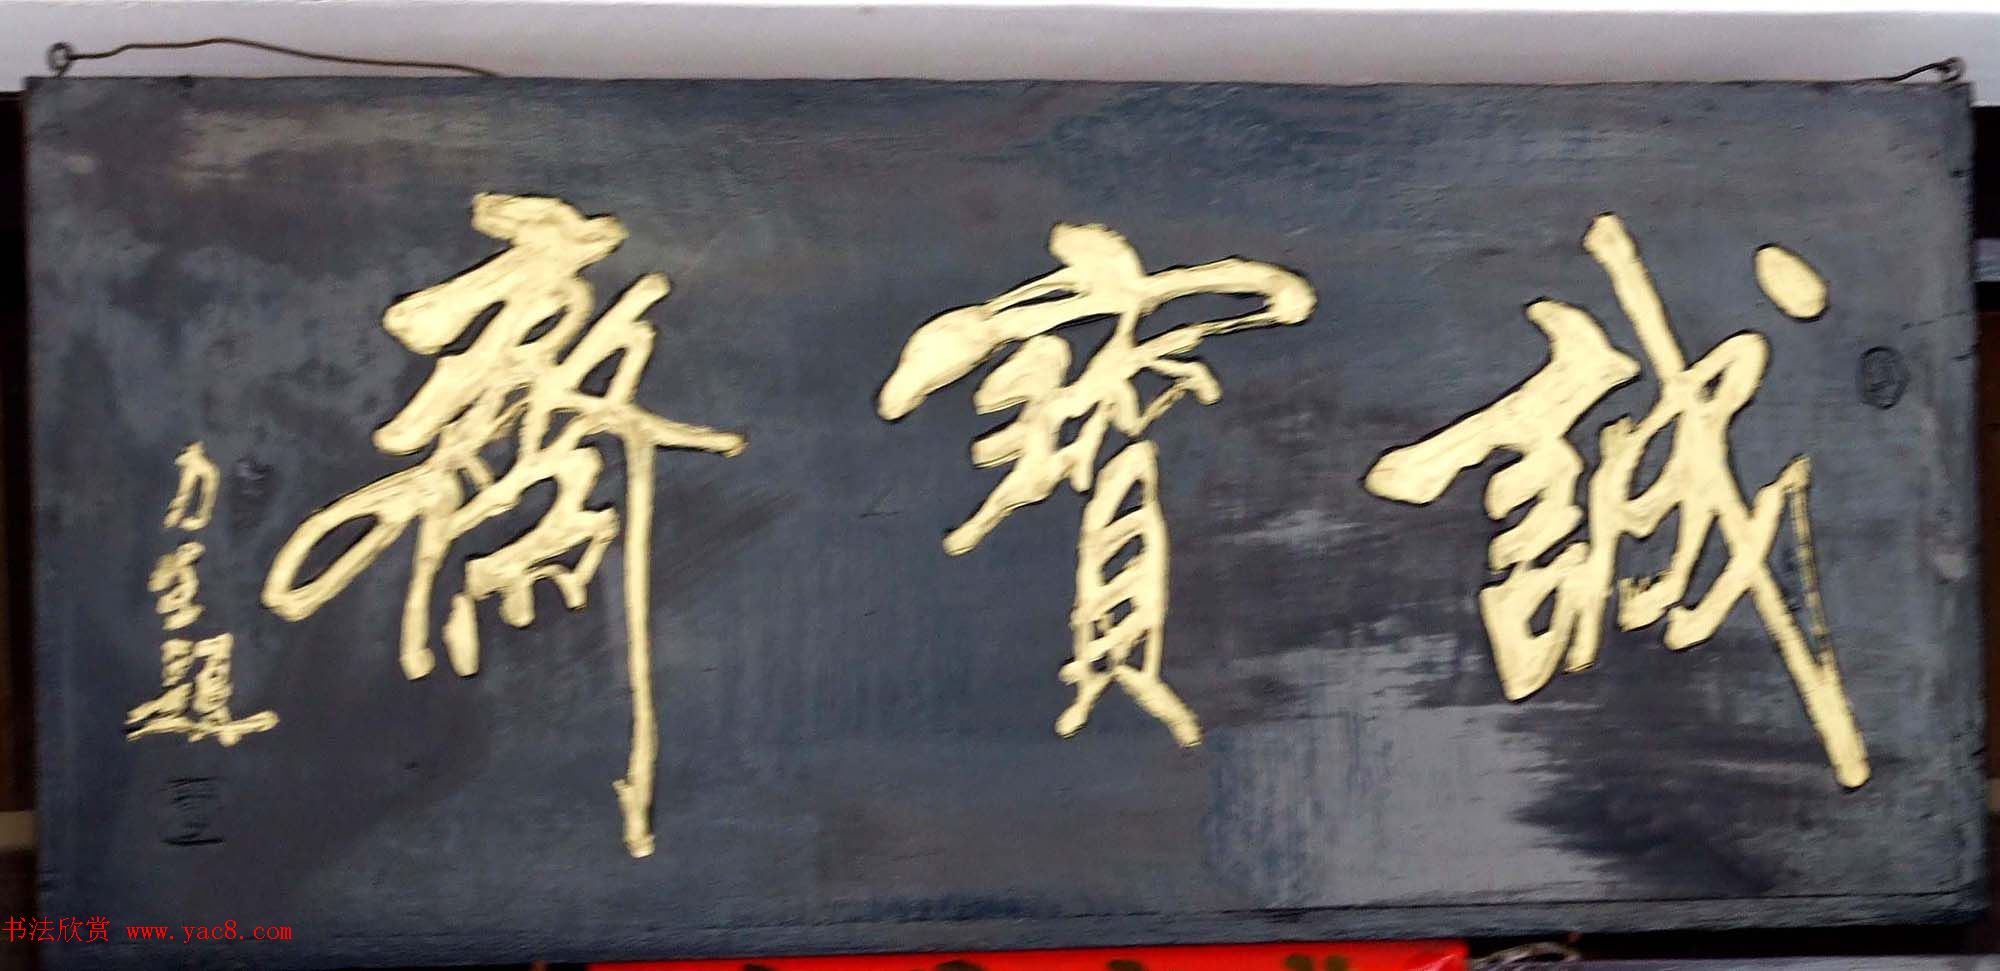 誠寶齋
力生題
书法欣赏 www.yac8.com